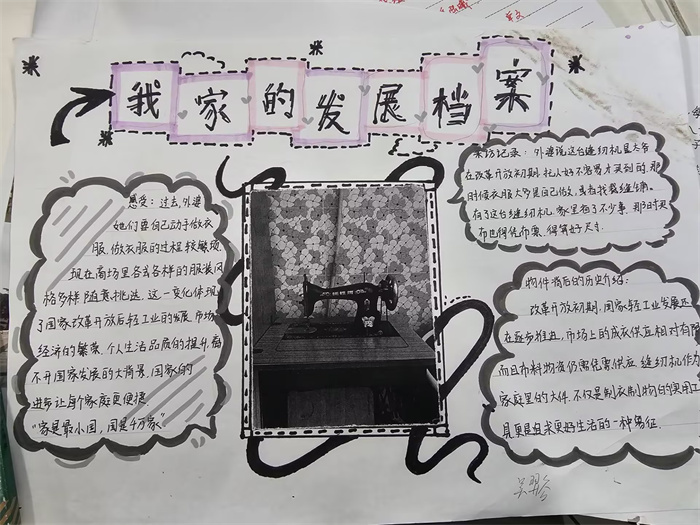 我家的发展档案
采访记录：外婆说这台缝纫机是大爷
在改革开放初期，托人好不容易才买到的，那
时候衣服大多是自己做，或者找裁缝铺。
有了这台缝纫机，家里省了不少事，那时买
布也得凭布票，得算好尺寸。
感受：过去，外婆
她们要自己动手做衣
服，做衣服的过程较繁琐，
现在商场里各式各样的服装风
格多样，随意挑选，这一变化体现
了国家改革开放后轻工业的发展，市场
经济的繁荣，个人生活品质的提升，离
不开国家发展的大背景，国家的
进步让每个家庭更便捷
“家是最小国，国是千万家”
物件背后的历史介绍：
改革开放初期，国家轻工业发展还
在逐步推进，市场上的成衣供应相对有限
而且布料物资仍需凭票供应，缝纫机作为
家庭里的大件，不仅是制衣制物的实用工
具，更是追求更好生活的一种象征.